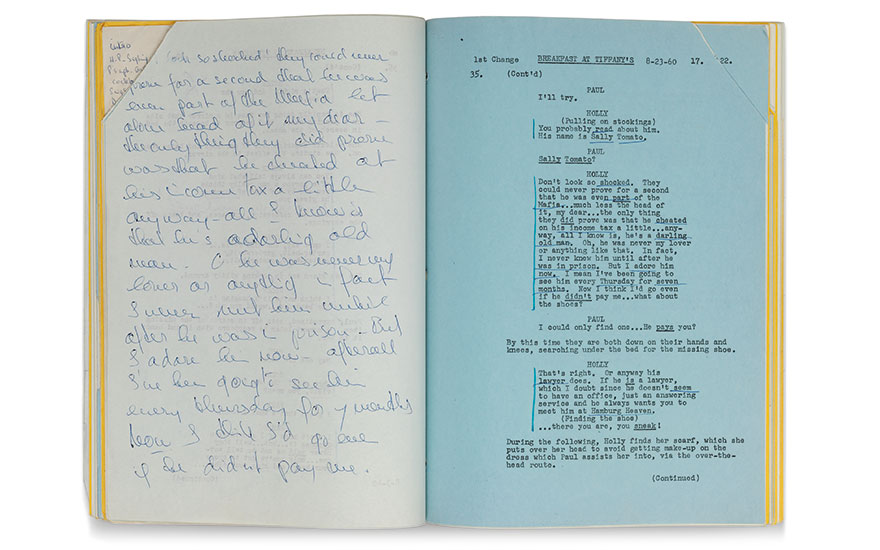 Intro
so shocked! They could never
prove for a second that he was
even part of the Mafia let
alone head of it my dear —
the only thing they did prove
was that he cheated at
his income tax a little
anyway – all I know is
that he's a darling old
man. O he was never my
lover or anything – in fact
I never met him until
after he was in prison – But
I adore him now – after all
I've been going to see him
every Thursday for 7 months
Now I think I'd go even
if he didn't pay me.
1st Change BREAKFAST AT TIFFANY'S 8-23-60 17. 22.
35. (Cont'd)
PAUL
I'll try.
HOLLY
(Pulling on stockings)
You probably read about him.
His name is Sally Tomato.
PAUL
Sally Tomato?
HOLLY
Don't look so shocked. They
could never prove for a second
that he was even part of the
Mafia...much less the head of
it, my dear...the only thing
they did prove was that he cheated
on his income tax a little...any-
way, all I know is, he's a darling
old man. Oh, he was never my lover
or anything like that. In fact,
I never knew him until after he
was in prison. But I adore him
now. I mean I've been going to
see him every Thursday for seven
months. Now I think I'd go even
if he didn't pay me...what about
the shoes?
PAUL
I could only find one...He pays you?
By this time they are both down on their hands and
knees, searching under the bed for the missing shoe.
HOLLY
That's right. Or anyway his
lawyer does. If he is a lawyer,
which I doubt since he doesn't seem
to have an office, just an answering
service and he always wants you to
meet him at Hamburg Heaven.
(Finding the shoe)
...there you are, you sneak!
During the following, Holly finds her scarf, which she
puts over her head to avoid getting make-up on the
dress which Paul assists her into, via the over-the-
head route.
(Continued)